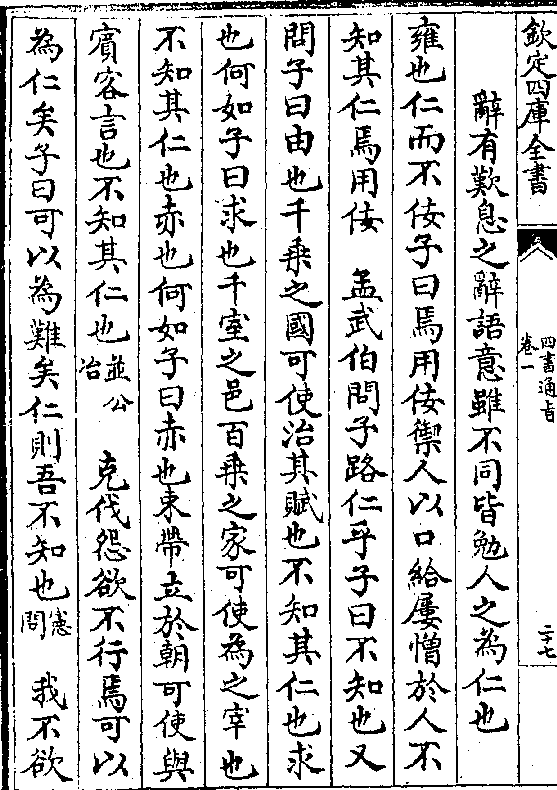 欽定四庫全書
四書通旨
卷一
二七
辭有歎息之辭語意雖不同皆勉人之為仁也
雍也仁而不佞子曰焉用佞禦人以口給屢憎於人不
知其仁焉用佞　孟武伯問子路仁乎子曰不知也又
問子曰由也千乗之國可使治其賦也不知其仁也求
也何如子曰求也千室之邑百乗之家可使為之宰也
不知其仁也赤也何如子曰赤也束帶立於朝可使與
賓客言也不知其仁也並公冶　克伐怨欲不行焉可以
為仁矣子曰可以為難矣仁則吾不知也憲問　我不欲